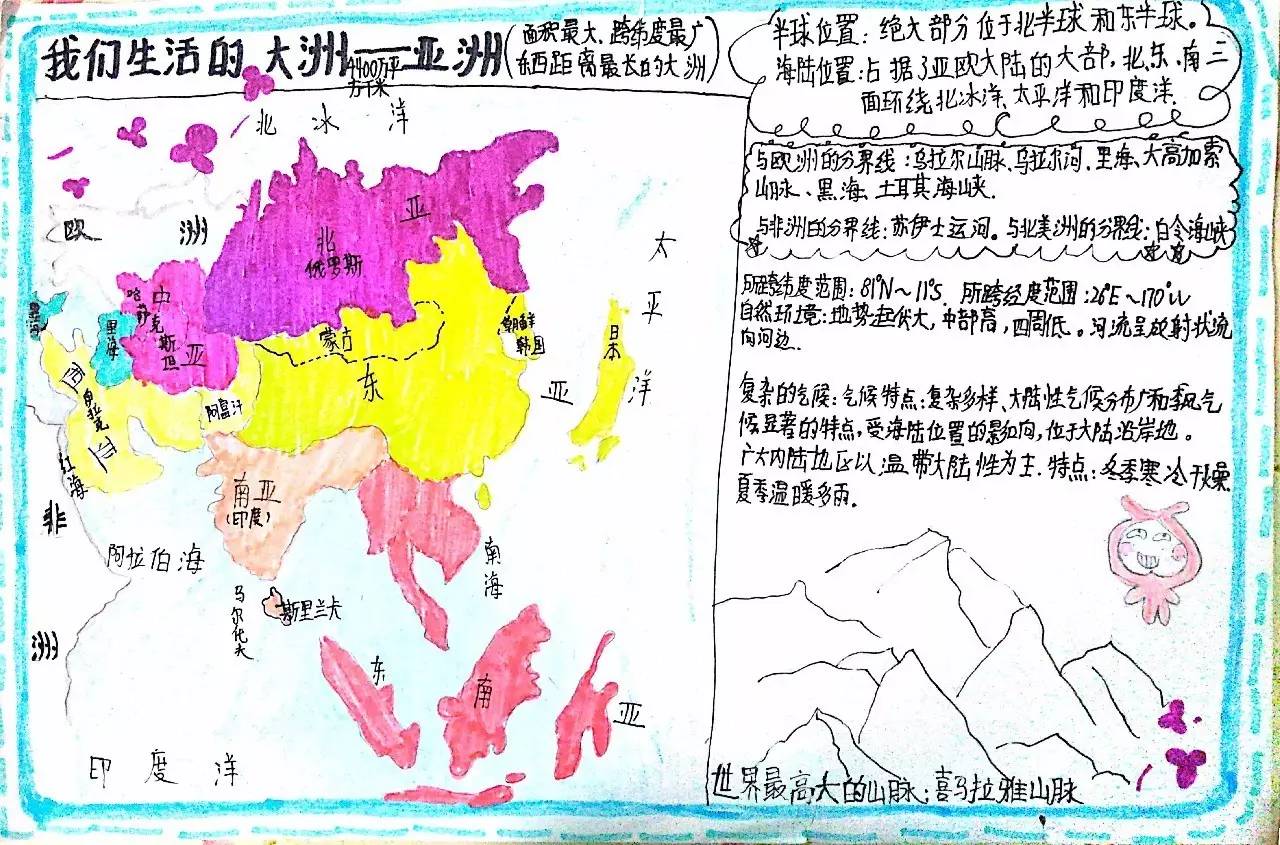 我们生活的大洲——亚洲
(面积最大、跨纬度最广
东西距离最长的大洲)
4400万平
方千米
半球位置：绝大部分位于北半球和东半球。
海陆位置：占据了亚欧大陆的大部，北、东、南三
面环绕北冰洋、太平洋和印度洋.
与欧洲的分界线：乌拉尔山脉、乌拉尔河、里海、大高加索
山脉、黑海、土耳其海峡.
与非洲的分界线：苏伊士运河。与北美洲的分界线：白令海峡
所跨纬度范围：81°N～11°S. 所跨经度范围：26°E～170°W
自然环境：地势起伏大，中部高，四周低。河流呈放射状流
向河边.
复杂的气候：气候特点：复杂多样、大陆性气候分布广和季风气
候显著的特点，受海陆位置的影响，位于大陆沿岸地。
广大内陆地区以温带大陆性为主. 特点：冬季寒冷干燥
夏季温暖多雨.
世界最高大的山脉：喜马拉雅山脉
北冰洋
欧洲
北亚
俄罗斯
太平洋
黑海
里海
中亚
哈萨克斯坦
蒙古
朝鲜
韩国
日本
西亚
伊拉克
阿富汗
东亚
红海
南亚
(印度)
非洲
阿拉伯海
南海
马尔代夫
斯里兰卡
东南亚
印度洋